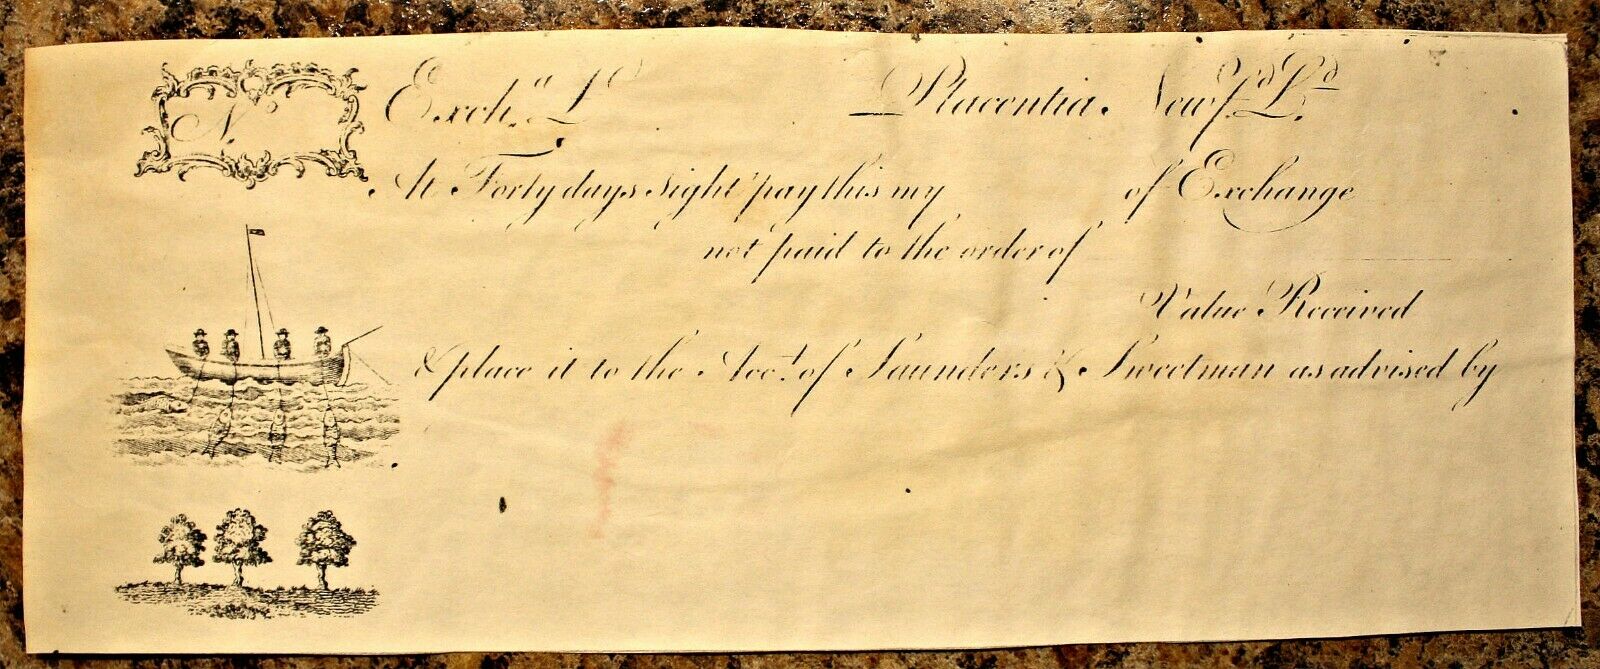 N.º
Exch.ª £ Placentia. Newf.d L.d
At Forty days sight pay this my of Exchange
not paid to the order of
Value Received
& place it to the Acc.t of Saunders & Sweetman as advised by